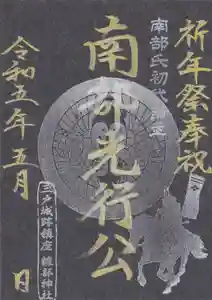 祈年祭奉祝
南部氏初代
南部光行公
令和五年五月 日
三戸城跡鎮座 糠部神社